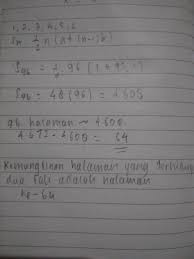 1, 2, 3, 4, 5, 6
Sn = ½ n (a + (n-1) b)
S96 = ½ · 96 (
S96 = 48 (96) = 4.608
96 halaman → 4.608
4.672 - 4.608 = 64
Kemungkinan halaman yang terhitung
dua kali adalah halaman
ke-64